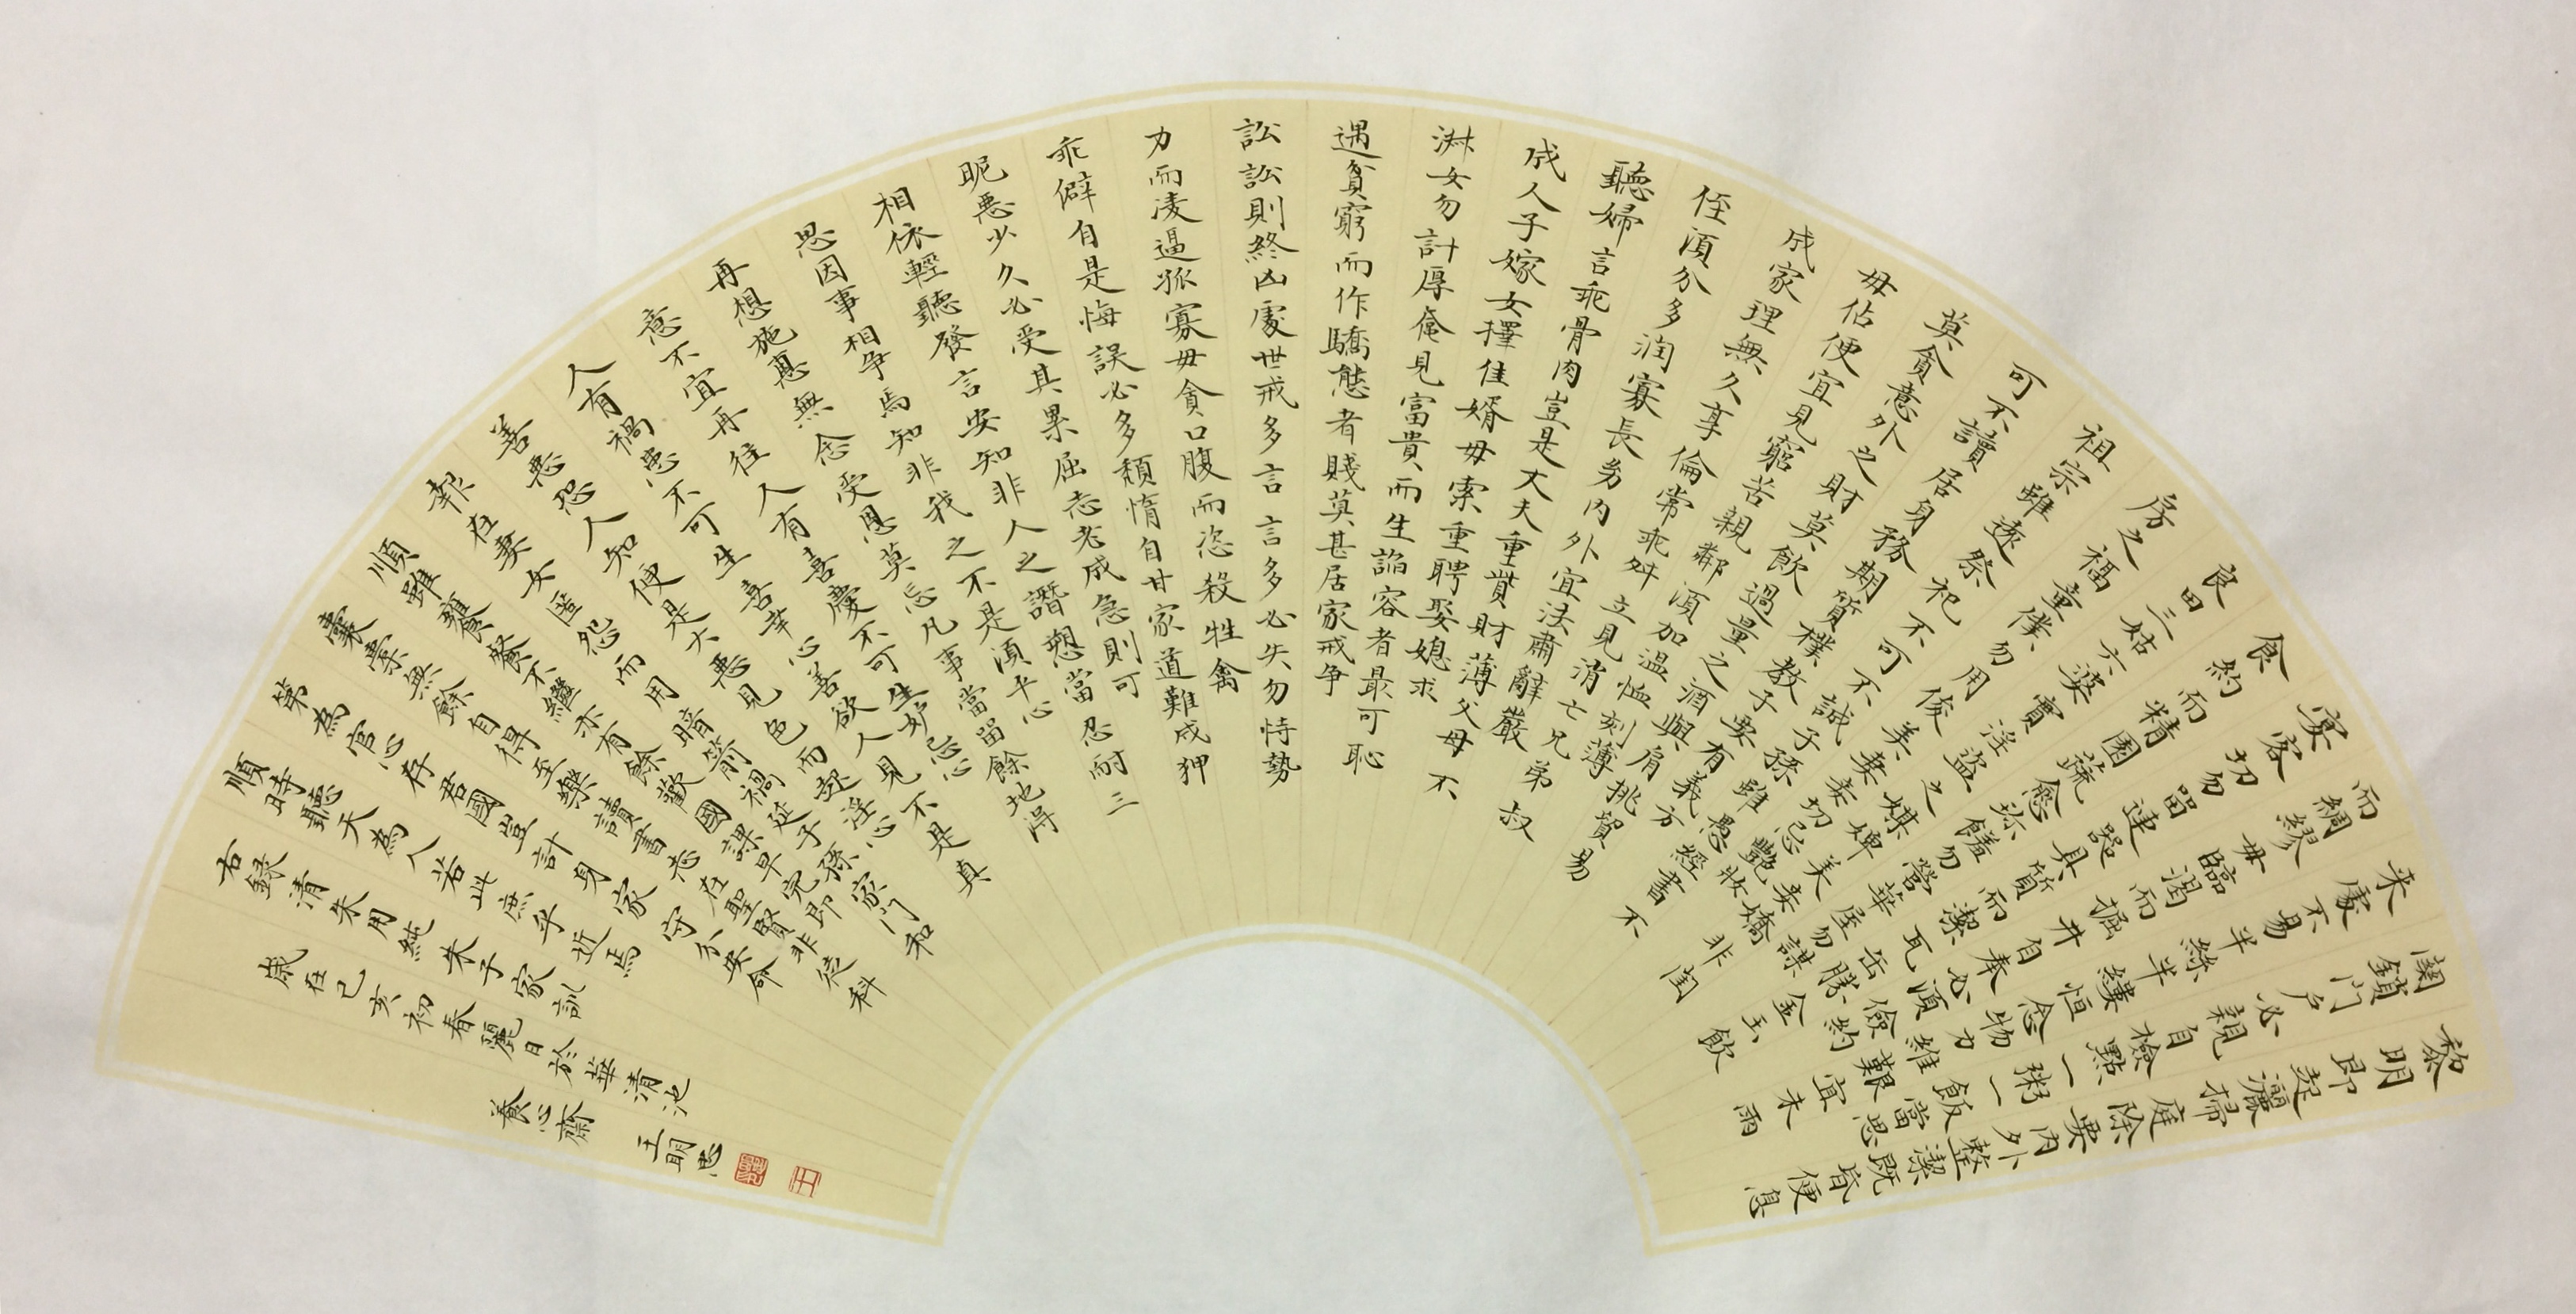 黎明即起灑掃庭除要內外整潔既昏便息
關鎖門戶必親自檢點一粥一飯當思
来處不易半絲半縷恒念物力維艱宜未雨
而綢繆毋臨渴而掘井自奉必須儉約
宴客切勿留連器具質而潔瓦缶勝金玉飲
食約而精園蔬愈珍饈勿營華屋勿謀
良田三姑六婆實淫盜之媒婢美妾嬌非閨
房之福童僕勿用俊美妻妾切忌艷妝
祖宗雖遠祭祀不可不誠子孫雖愚經書不
可不讀居身務期質樸教子要有義方
莫貪意外之財莫飲過量之酒與肩挑貿易
毋佔便宜見窮苦親鄰須加温恤刻薄
成家理無久享倫常乖舛立見消亡兄弟叔
侄須分多潤寡長幼內外宜法肅辭嚴
聽婦言乖骨肉豈是大丈夫重貲財薄父母不
成人子嫁女擇佳婿毋索重聘娶媳求
淑女勿計厚奩見富貴而生諂容者最可恥
遇貧窮而作驕態者賤莫甚居家戒争
訟訟則終凶處世戒多言言多必失勿恃勢
力而凌逼孤寡毋貪口腹而恣殺牲禽
乖僻自是悔誤必多頹惰自甘家道難成狎
昵惡少久必受其累屈志老成急則可
相依輕聽發言安知非人之譖愬當忍耐三
思因事相争焉知非我之不是須平心
再想施惠無念受恩莫忘凡事當留餘地得
意不宜再往人有喜慶不可生妒忌心
人有禍患不可生喜幸心善欲人見不是真
善惡恐人知便是大惡見色而起淫心
報在妻女匿怨而用暗箭禍延子孫家門和
順雖饔飧不繼亦有餘歡國課早完即
囊橐無餘自得至樂讀書志在聖賢非徒科
第為官心存君國豈計身家守分安命
順時聽天為人若此庶乎近焉
右錄清朱用純朱子家訓
歲在己亥初春麗日於華清池
養心齋 王明忠
王